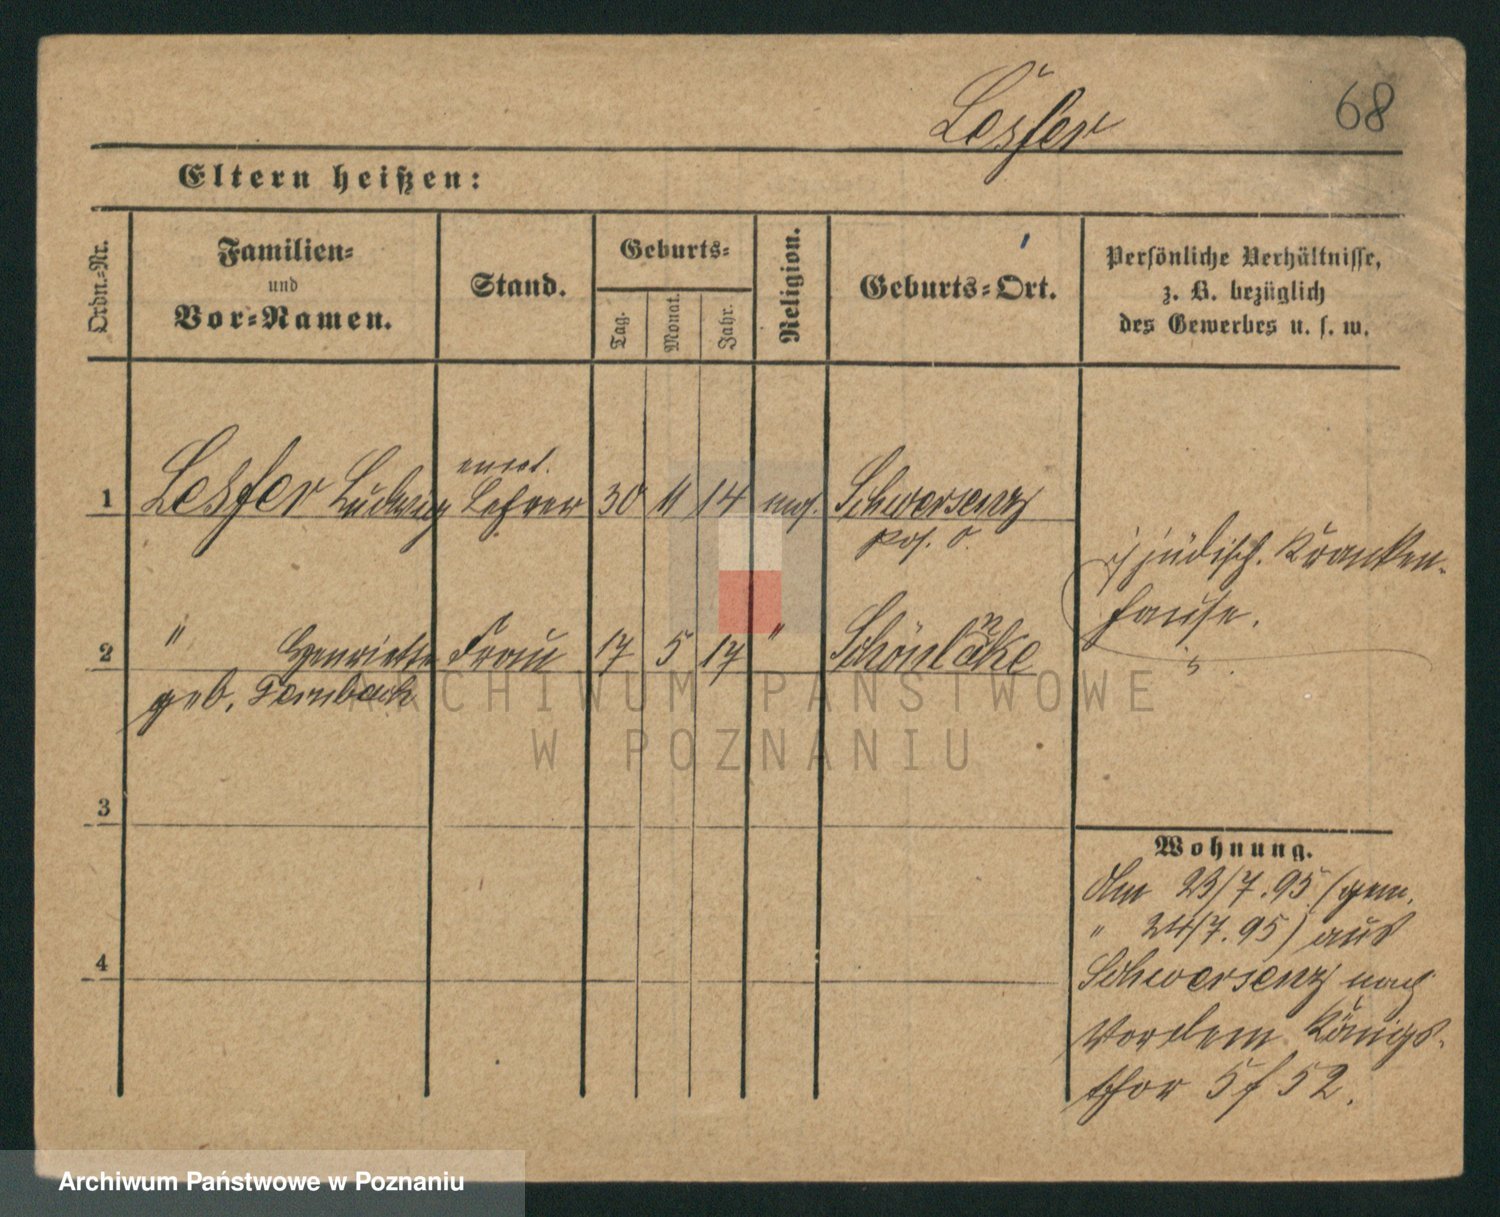 Lesser
68
Eltern heißen:
Ordn.-Nr.
Familien-
und
Vor-Namen.
Stand.
Geburts-
Tag.
Monat.
Jahr.
Religion.
Geburts-Ort.
Persönliche Verhältnisse,
z. B. bezüglich
des Gewerbes u. s. w.
1
Lesser Ludwig
Lehrer
30 11 14
Schwersenz
2
" Henriette
geb.
Frau
17 5 17
"
Schönlanke
jüdisch. Kranken-
hause.
"
3
4
Wohnung.
Am 23/7.95 (gem.
" 24/7.95) aus
Schwersenz nach
Vor dem Königs-
thor 5/52.
ARCHIWUM PAŃSTWOWE
W POZNANIU
Archiwum Państwowe w Poznaniu